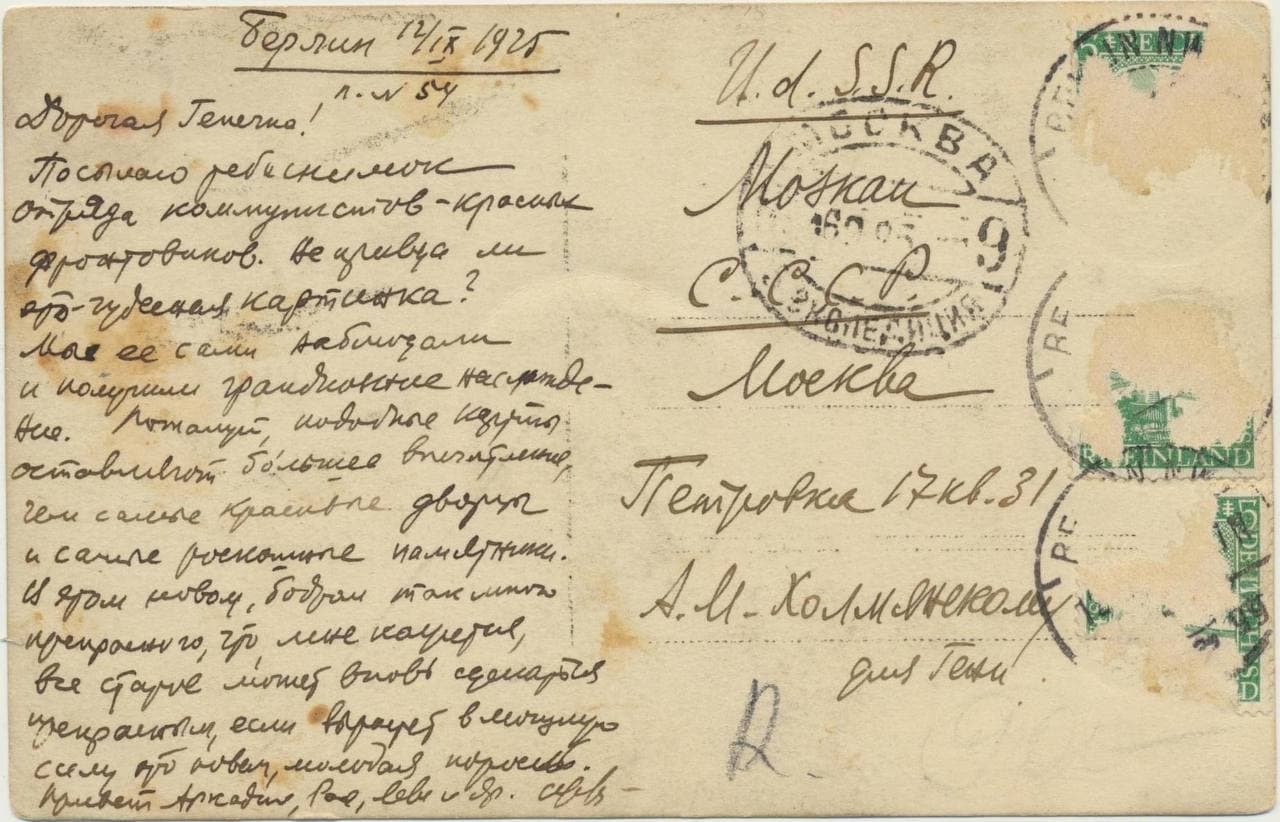 Берлин 12/IX 1925
п. N 54
Дорогая Генечка!
Посылаю тебе снимок
отряда коммунистов-красных
фронтовиков. Не правда ли
это-чудесная картинка?
Мы ее сами наблюдали
и получили грандиозное наслажде-
ние. Пожалуй, подобные
оставляют большее впечатление,
чем самые красивые дворцы
и самые роскошные памятники.
В этом новом, бодром так много
прекрасного, что мне кажется,
все старое может вновь сделаться
прекрасным, если вырастет в могучую
силу эта новая, молодая поросль.
Привет Аркадию, Рае, Леве и др.
U. d. S.S.R.
Moskau
С.С.С.Р.
Москва
Петровка 17 кв. 31
А. И. Холмянскому
для Гени
R.
МОСКВА
9
ЭКСПЕДИЦИЯ
FINLAND